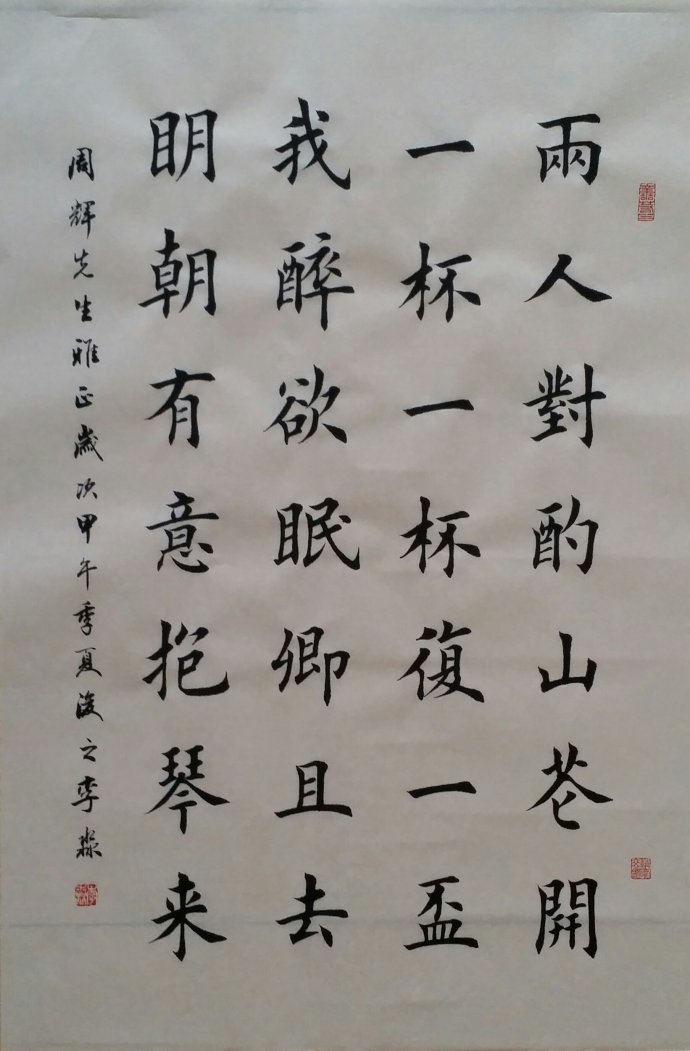 兩人對酌山花開
一杯一杯復一盃
我醉欲眠卿且去
明朝有意抱琴来
周輝先生雅正歲次甲午季夏後之李淼